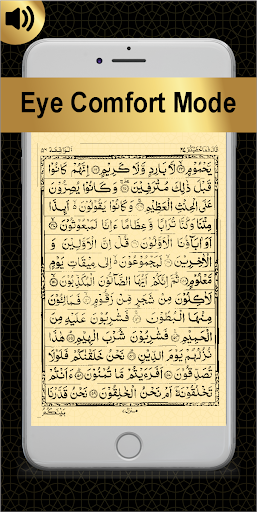 Eye Comfort Mode
قَالَ فَمَا خَطْبُكُمْ ٢٧ الْوَاقِعَة ٥٦
يَّحْمُوْمٍ ۙ لَّا بَارِدٍ وَّلَا كَرِيْمٍ ۙ اِنَّهُمْ كَانُوْا
قَبْلَ ذٰلِكَ مُتْرَفِيْنَ ۙ وَكَانُوْا يُصِرُّوْنَ
عَلَى الْحِنْثِ الْعَظِيْمِ ۙ وَكَانُوْا يَقُوْلُوْنَ اَئِذَا
مِتْنَا وَكُنَّا تُرَابًا وَّعِظَامًا ءَاِنَّا لَمَبْعُوْثُوْنَ ۙ
اَوَ اٰبَآؤُنَا الْاَوَّلُوْنَ ۙ قُلْ اِنَّ الْاَوَّلِيْنَ وَ
الْاٰخِرِيْنَ ۙ لَمَجْمُوْعُوْنَ اِلٰى مِيْقَاتِ يَوْمٍ
مَّعْلُوْمٍ ۙ ثُمَّ اِنَّكُمْ اَيُّهَا الضَّآلُّوْنَ الْمُكَذِّبُوْنَ ۙ
لَاٰكِلُوْنَ مِنْ شَجَرٍ مِّنْ زَقُّوْمٍ ۙ فَمَالِـُٔوْنَ
مِنْهَا الْبُطُوْنَ ۙ فَشٰرِبُوْنَ عَلَيْهِ مِنَ
الْحَمِيْمِ ۙ فَشٰرِبُوْنَ شُرْبَ الْهِيْمِ ۙ هٰذَا
نُزُلُهُمْ يَوْمَ الدِّيْنِ ۙ نَحْنُ خَلَقْنٰكُمْ فَلَوْلَا
تُصَدِّقُوْنَ ۙ اَفَرَءَيْتُمْ مَّا تُمْنُوْنَ ۙ ءَاَنْتُمْ
تَخْلُقُوْنَهٗٓ اَمْ نَحْنُ الْخٰلِقُوْنَ ۙ نَحْنُ قَدَّرْنَا
بَيْنَكُمُ